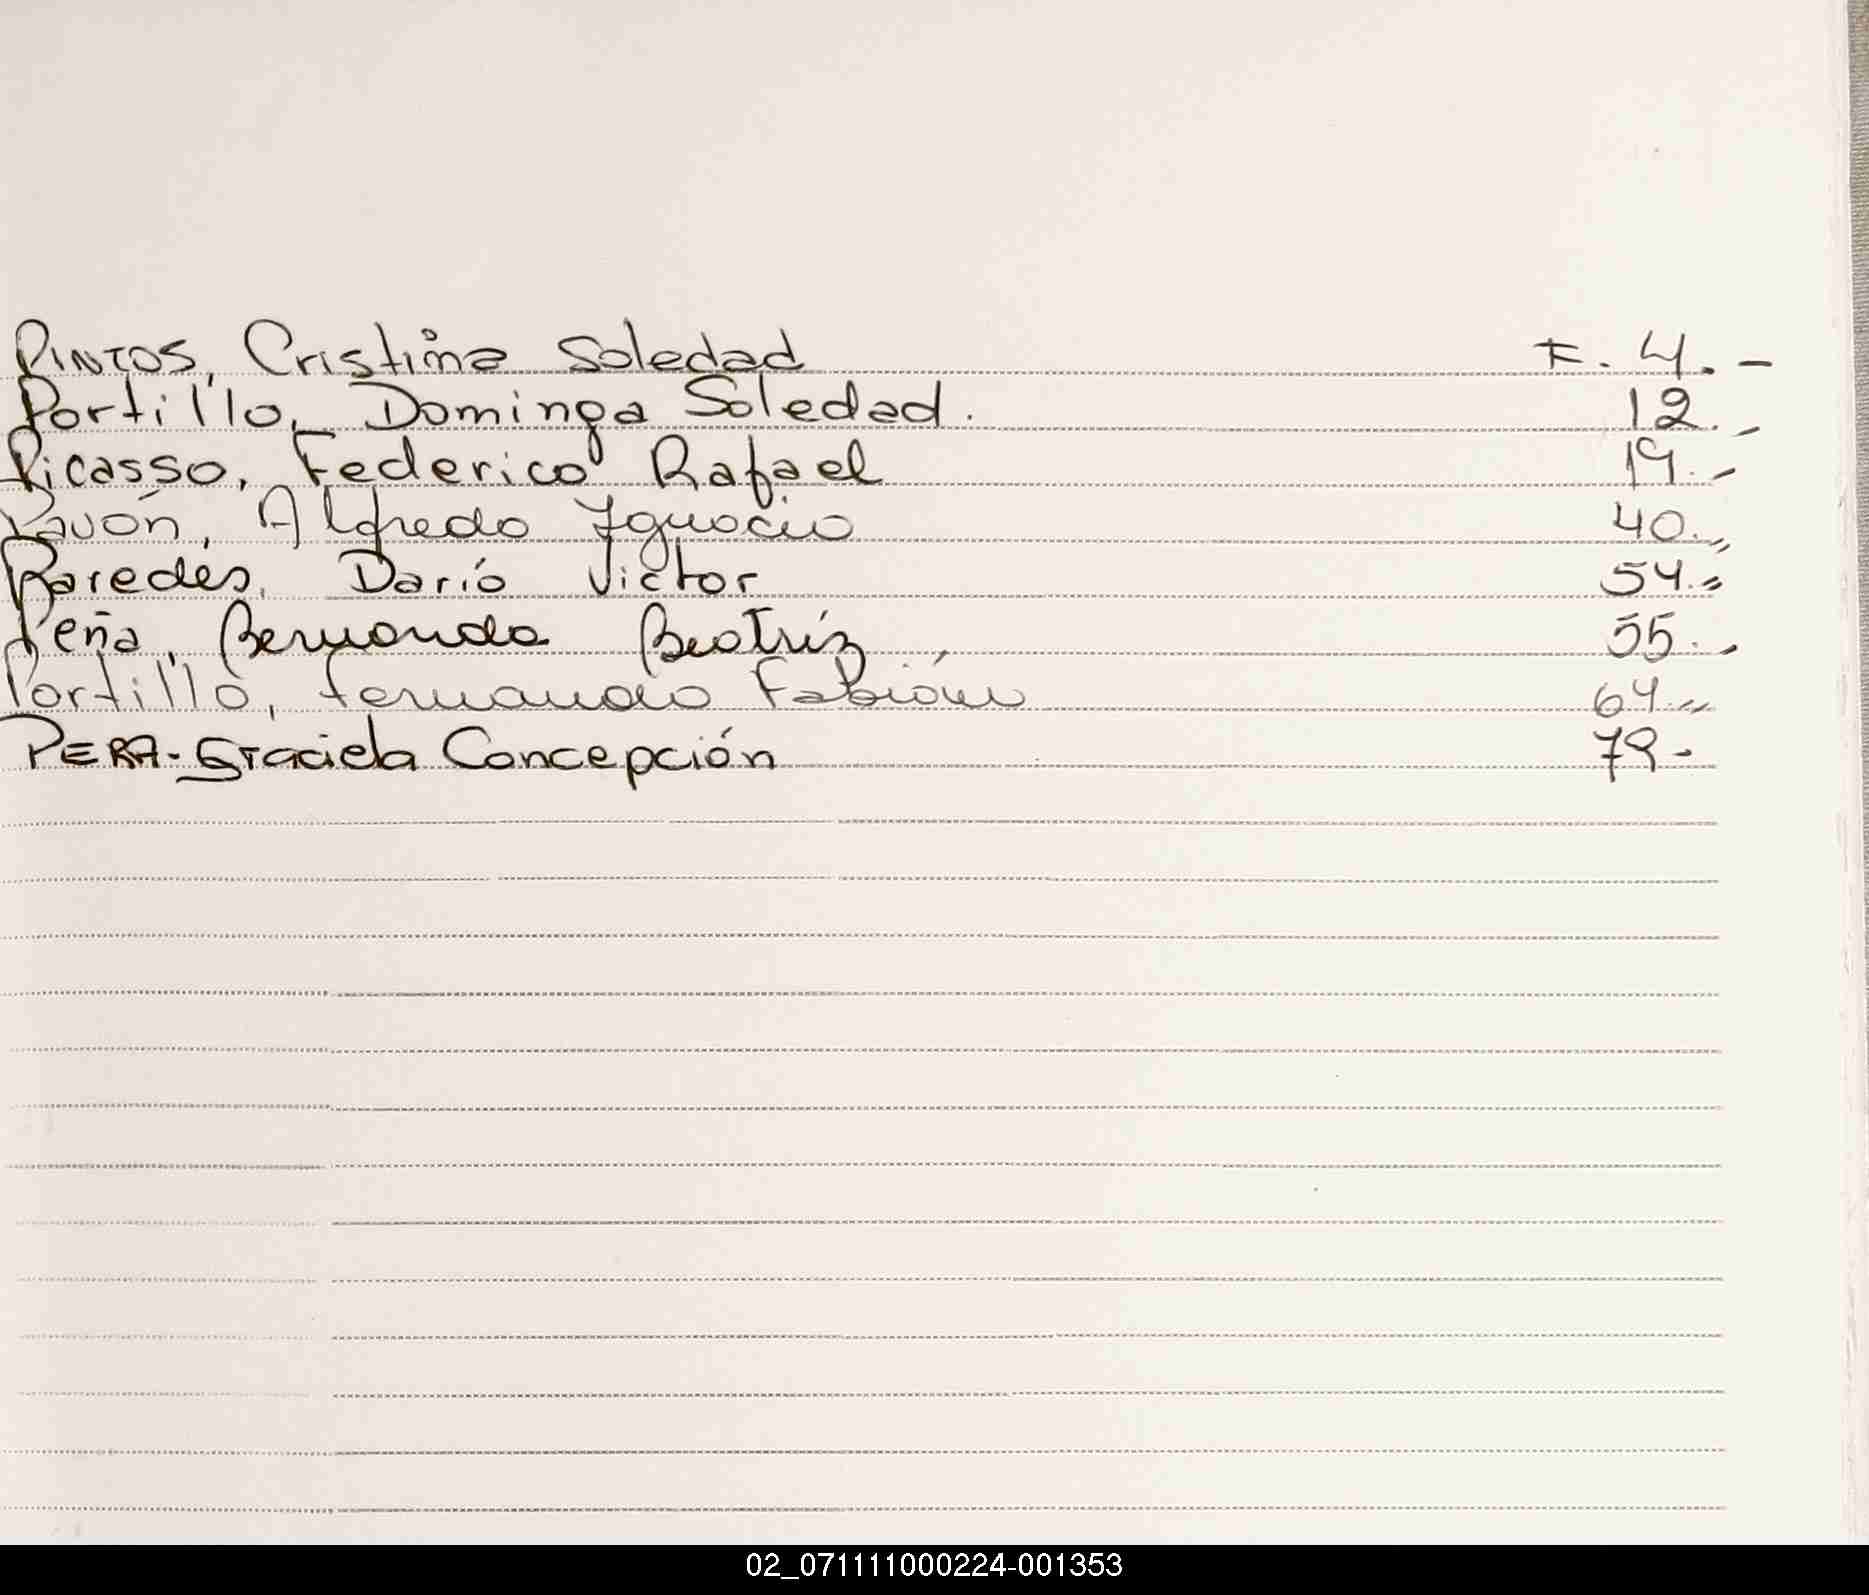 PINTOS, Cristina Soledad F. 4. -
Portillo, Dominga Soledad. 12. -
Picasso, Federico Rafael 19. -
Pavón, Alfredo Ygnacio 40. „
Paredes, Darío Victor 54. „
Peña, Bernarda Beatríz 55. -
Portillo, Fernando Fabián 64. „
PERA- Graciela Concepción 79 -
02_071111000224-001353